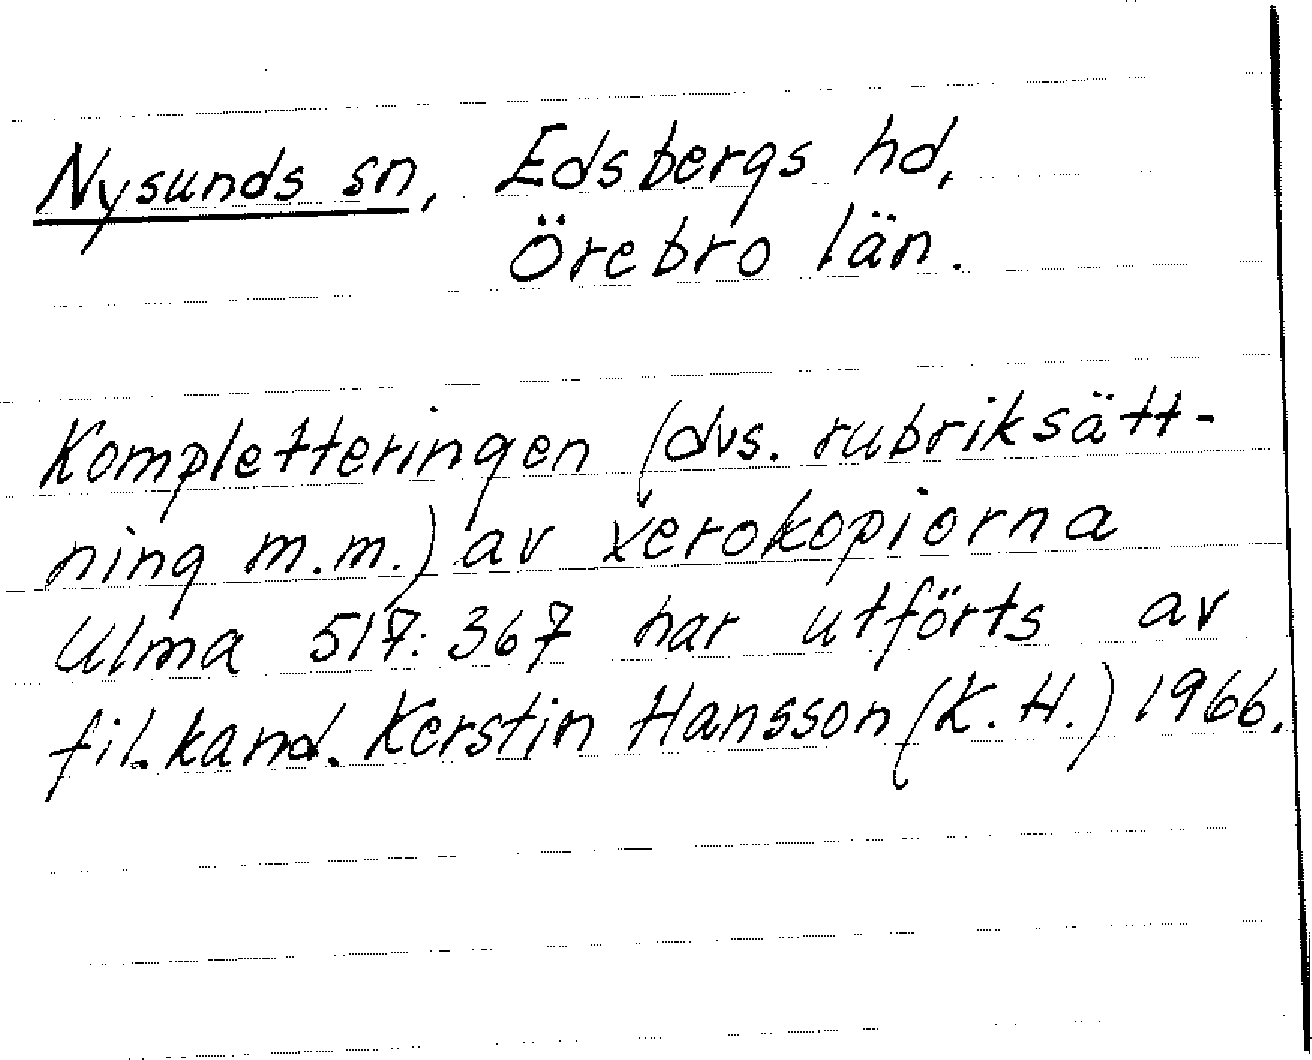 Nysunds sn, Edsbergs hd,
Örebro län.
Kompletteringen (dvs. rubriksätt-
ning m.m.) av xerokopiorna
Ulma 517:367 har utförts av
fil.kand. Kerstin Hansson (K.H.) 1966.